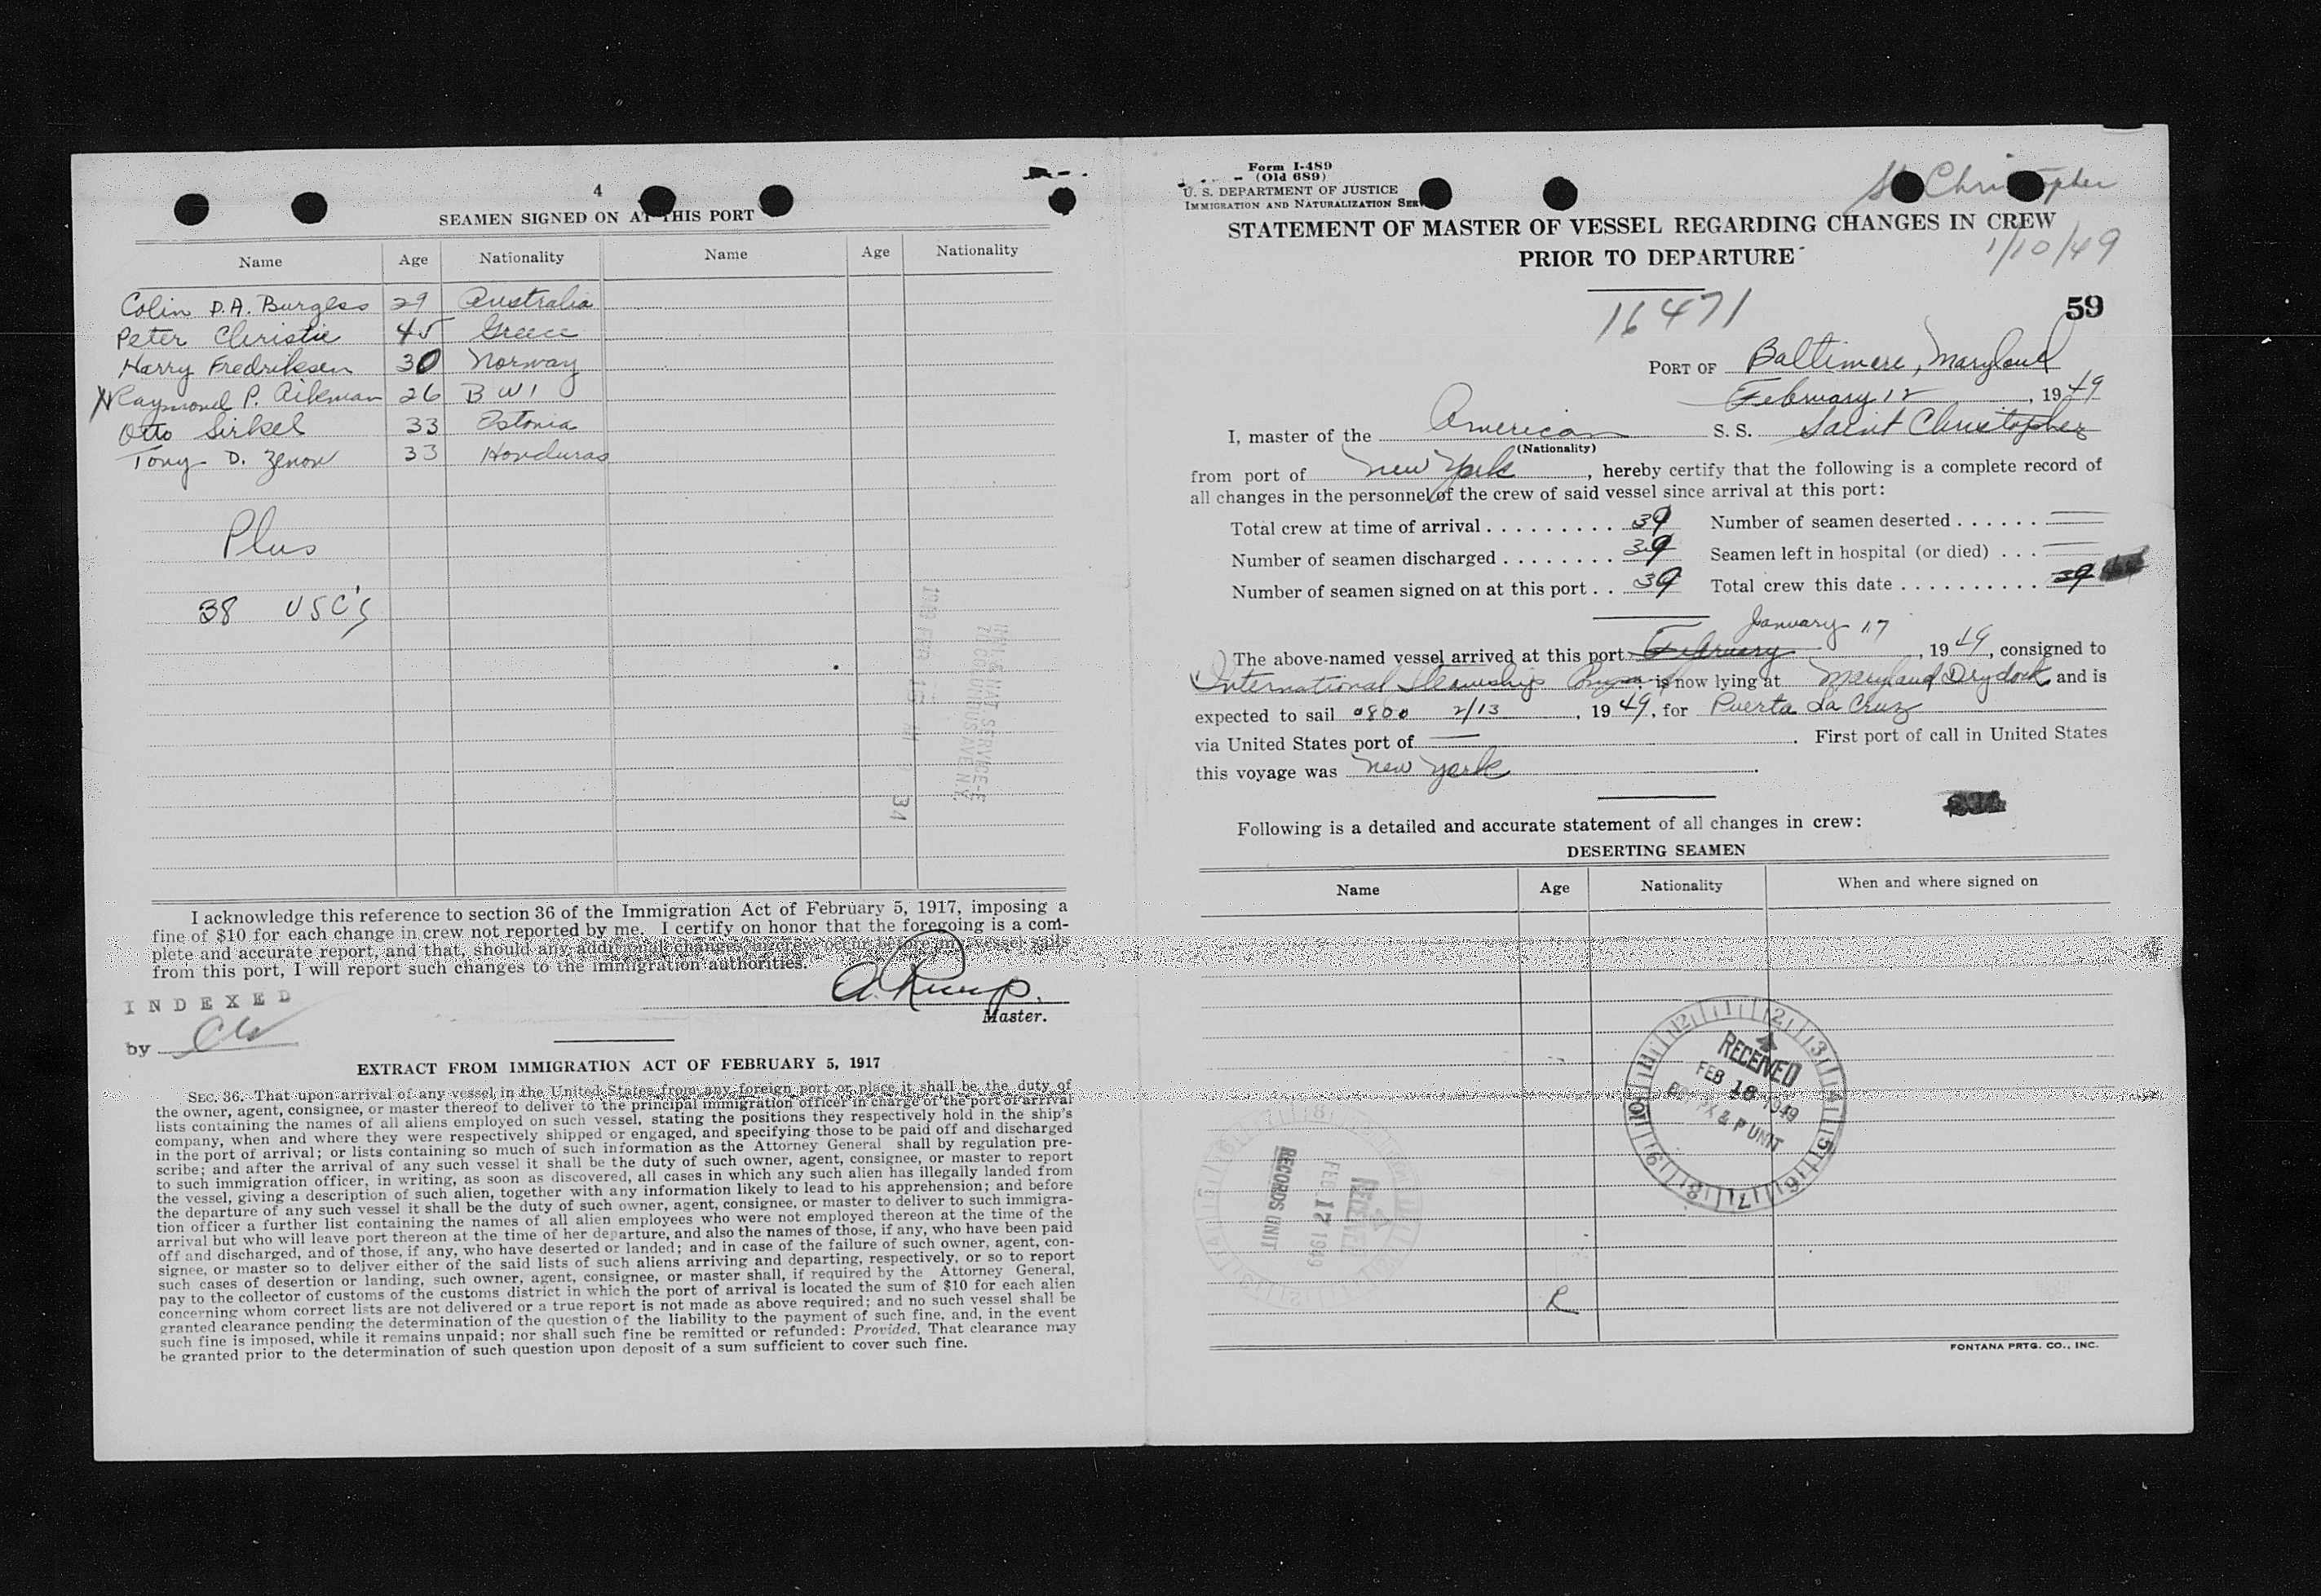 4
SEAMEN SIGNED ON AT THIS PORT
Name Age Nationality Name Age Nationality
Colin D.A. Burgess 29 Australia
Peter Christie 45 Greece
Harry Fredriksen 30 Norway
X Raymond P. Aikman 26 B W I
Otto Sirkel 33 Estonia
Tony D. Zenon 33 Honduras
Plus
38 USC's
I acknowledge this reference to section 36 of the Immigration Act of February 5, 1917, imposing a
fine of $10 for each change in crew not reported by me. I certify on honor that the foregoing is a com-
plete and accurate report, and that, should any additional changes in crew occur before my vessel sails
from this port, I will report such changes to the immigration authorities.
Master.
INDEXED
by
EXTRACT FROM IMMIGRATION ACT OF FEBRUARY 5, 1917
SEC. 36. That upon arrival of any vessel in the United States from any foreign port or place it shall be the duty of
the owner, agent, consignee, or master thereof to deliver to the principal immigration officer in charge of the port of arrival
lists containing the names of all aliens employed on such vessel, stating the positions they respectively hold in the ship's
company, when and where they were respectively shipped or engaged, and specifying those to be paid off and discharged
in the port of arrival; or lists containing so much of such information as the Attorney General shall by regulation pre-
scribe; and after the arrival of any such vessel it shall be the duty of such owner, agent, consignee, or master to report
to such immigration officer, in writing, as soon as discovered, all cases in which any such alien has illegally landed from
the vessel, giving a description of such alien, together with any information likely to lead to his apprehension; and before
the departure of any such vessel it shall be the duty of such owner, agent, consignee, or master to deliver to such immigra-
tion officer a further list containing the names of all alien employees who were not employed thereon at the time of the
arrival but who will leave port thereon at the time of her departure, and also the names of those, if any, who have been paid
off and discharged, and of those, if any, who have deserted or landed; and in case of the failure of such owner, agent, con-
signee, or master so to deliver either of the said lists of such aliens arriving and departing, respectively, or so to report
such cases of desertion or landing, such owner, agent, consignee, or master shall, if required by the Attorney General,
pay to the collector of customs of the customs district in which the port of arrival is located the sum of $10 for each alien
concerning whom correct lists are not delivered or a true report is not made as above required; and no such vessel shall be
granted clearance pending the determination of the question of the liability to the payment of such fine, and, in the event
such fine is imposed, while it remains unpaid; nor shall such fine be remitted or refunded: Provided, That clearance may
be granted prior to the determination of such question upon deposit of a sum sufficient to cover such fine.
Form I-489
(Old 689)
U. S. DEPARTMENT OF JUSTICE
IMMIGRATION AND NATURALIZATION SER
St Christopher
STATEMENT OF MASTER OF VESSEL REGARDING CHANGES IN CREW
PRIOR TO DEPARTURE
1/10/49
16471
59
PORT OF Baltimore, Maryland
February 12, 1949
I, master of the American S. S. Saint Christopher
(Nationality)
from port of New York, hereby certify that the following is a complete record of
all changes in the personnel of the crew of said vessel since arrival at this port:
Total crew at time of arrival . . . . . . . . . . 39 Number of seamen deserted . . . . . . —
Number of seamen discharged . . . . . . . . 39 Seamen left in hospital (or died) . . . —
Number of seamen signed on at this port . . 39 Total crew this date . . . . . . . . . . 39
January 17
The above-named vessel arrived at this port February, 1949, consigned to
International Steamship, is now lying at Maryland Drydock and is
expected to sail 0800 2/13, 1949, for Puerta La Cruz
via United States port of —. First port of call in United States
this voyage was New York.
Following is a detailed and accurate statement of all changes in crew:
DESERTING SEAMEN
Name Age Nationality When and where signed on
RECEIVED
FEB 18 1949
& P UNIT
RECEIVED
FEB 17 1949
RECORDS UNIT
R
FONTANA PRTG. CO., INC.